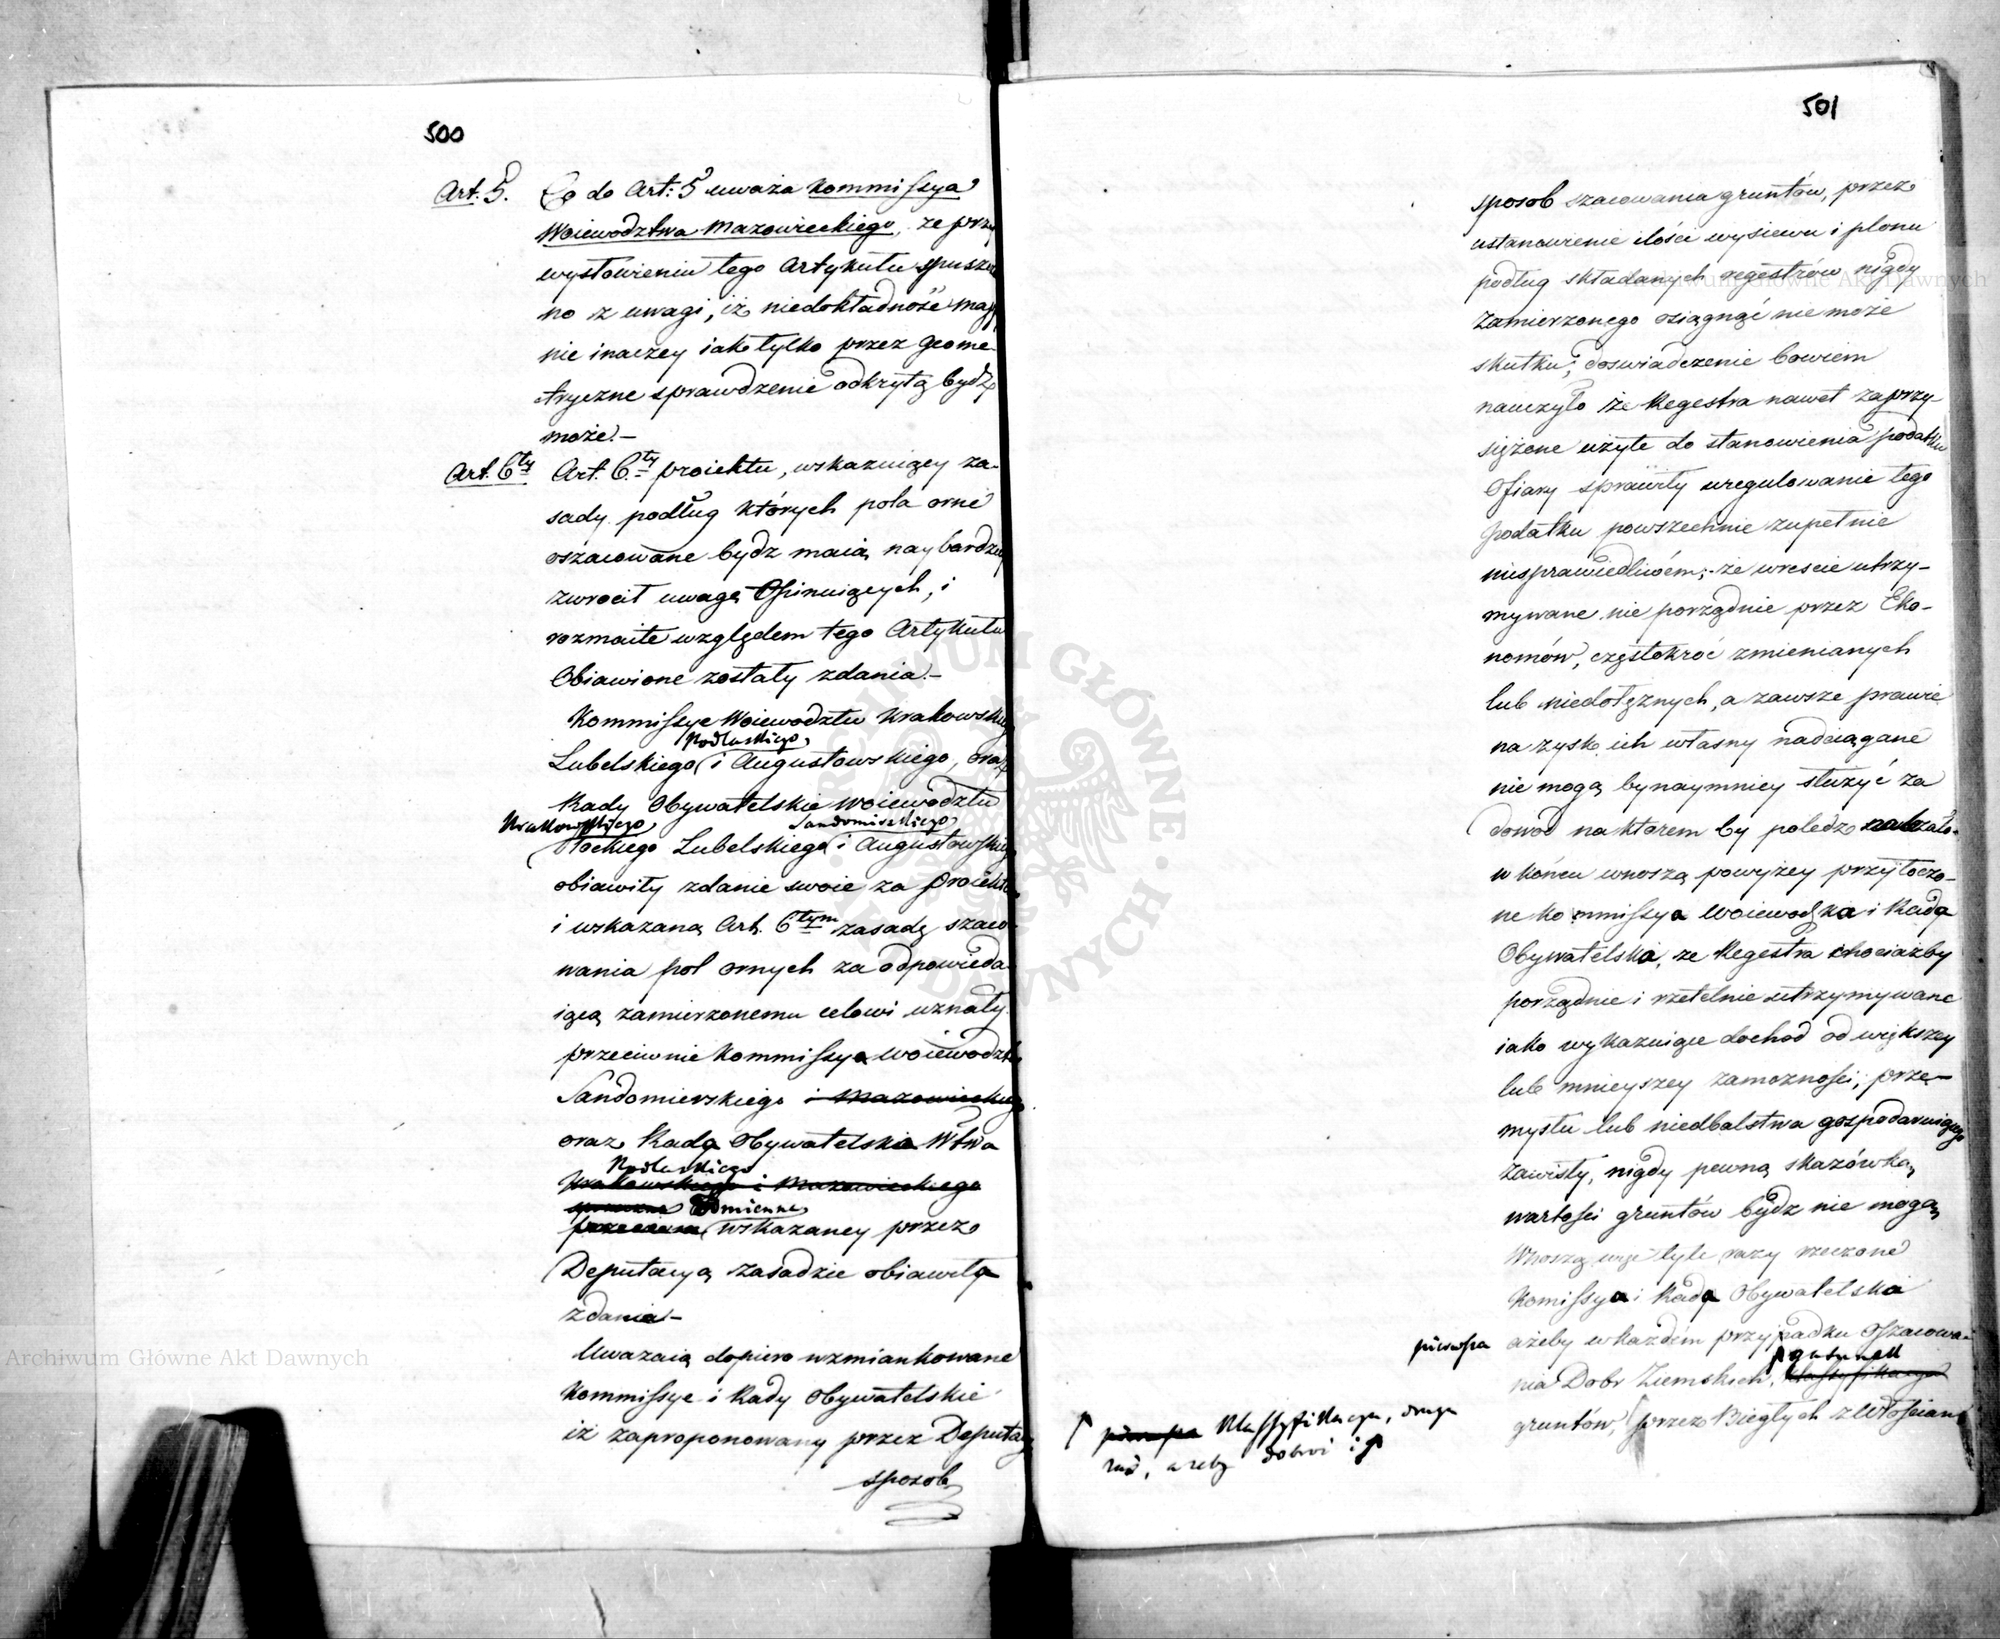 500
Art. 5. Co do Art: 5 uważa Kommissya
Woiewodztwa Mazowieckiego, że przy
wysłowieniu tego Artykułu spuszczo
no z uwagi, iż niedokładność mapp
nie inaczey iak tylko przez Geome-
tryczne sprawdzenie odkrytą bydź
może.-
Art. 6ty Art. 6.ty proiektu, wskazuiący za-
sady podług których pola orne
oszacowane bydz maią naybardziey
zwrocił uwagę Opiniuiących, i
rozmaite względem tego Artykułu
Obiawione zostały zdania.-
Kommissye Woiewodztw Krakowskiego
Podlaskiego
Lubelskiego i Augustowskiego, oraz
Rady Obywatelskie Woiewodztw
Krakowskiego Sandomirskiego
Płockiego Lubelskiego i Augustowskiego
obiawiły zdanie swoie za proiektem
i wskazaną Art. 6tym zasadę szaco-
wania pol ornych za odpowieda-
iącą zamierzonemu celowi uznały.
przeciwnie Kommissya Woiewodztwa
Sandomierskiego i Mazowieckiego
oraz Rada Obywatelska Wtwa
Podlaskiego
Krakowskiego i Mazowieckiego
odmienne
przeciwne wskazaney przez
Deputacyą zasadzie obiawiła
zdanie-
Uważaią dopiero wzmiankowane
Kommissye i Rady Obywatelskie
iż zaproponowany przez Deputacyą
sposob
501
sposob szacowania gruntów, przez
ustanowienie ilości wysiewu i plonu
podług składanych regestrów nigdy
zamierzonego osiągnąć nie może
skutku; doświadczenie bowiem
nauczyło że Regestra nawet zaprzy-
siężone użyte do stanowienia podatku
Ofiary sprawiły uregulowanie tego
podatku powszechnie zupełnie
niesprawiedliwém; że wreście utrzy-
mywane nie porządnie przez Eko-
nomów, częstokroć zmienianych
lub niedołężnych, a zawsze prawie
na zysk ich własny nadciągane
nie mogą bynaymniey służyć za
dowód na ktorem by poledz należało.
w końcu wnoszą powyżey przytoczo-
ne Kommissya Woiewodzka i Rada
Obywatelska, że Regestra chociażby
porządnie i rzetelnie utrzymywane
iako wykazuiące dochod od większey
lub mnieyszey zamożności, prze-
mysłu lub niedbalstwa gospodaruiącego
zawisły, nigdy pewną skazówką
wartości gruntów bydz nie mogą,
Wnoszą więc tyle razy rzeczone
Komissya i Rada Obywatelska
pierwsza ażeby w każdém przypadku Oszacowa-
gatunek
nia Dobr Ziemskich, klassyfikacya
gruntów, przez Biegłych z Włościan
pierwsza Klassyfikacya, druga
zaś, ażeby dobroć i